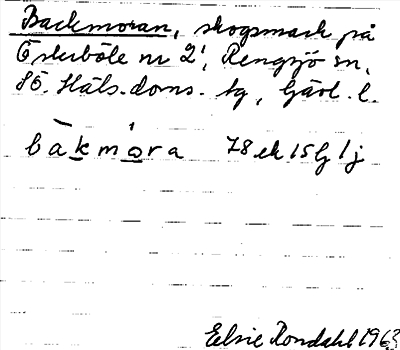 Backmoran, skogsmark på
Österböle nr 2¹, Rengsjö sn,
SÖ. Häls. doms. tg, Gävl. l.
båkmora 78 ek 15 G 1 j
Elsie Rondahl 1963